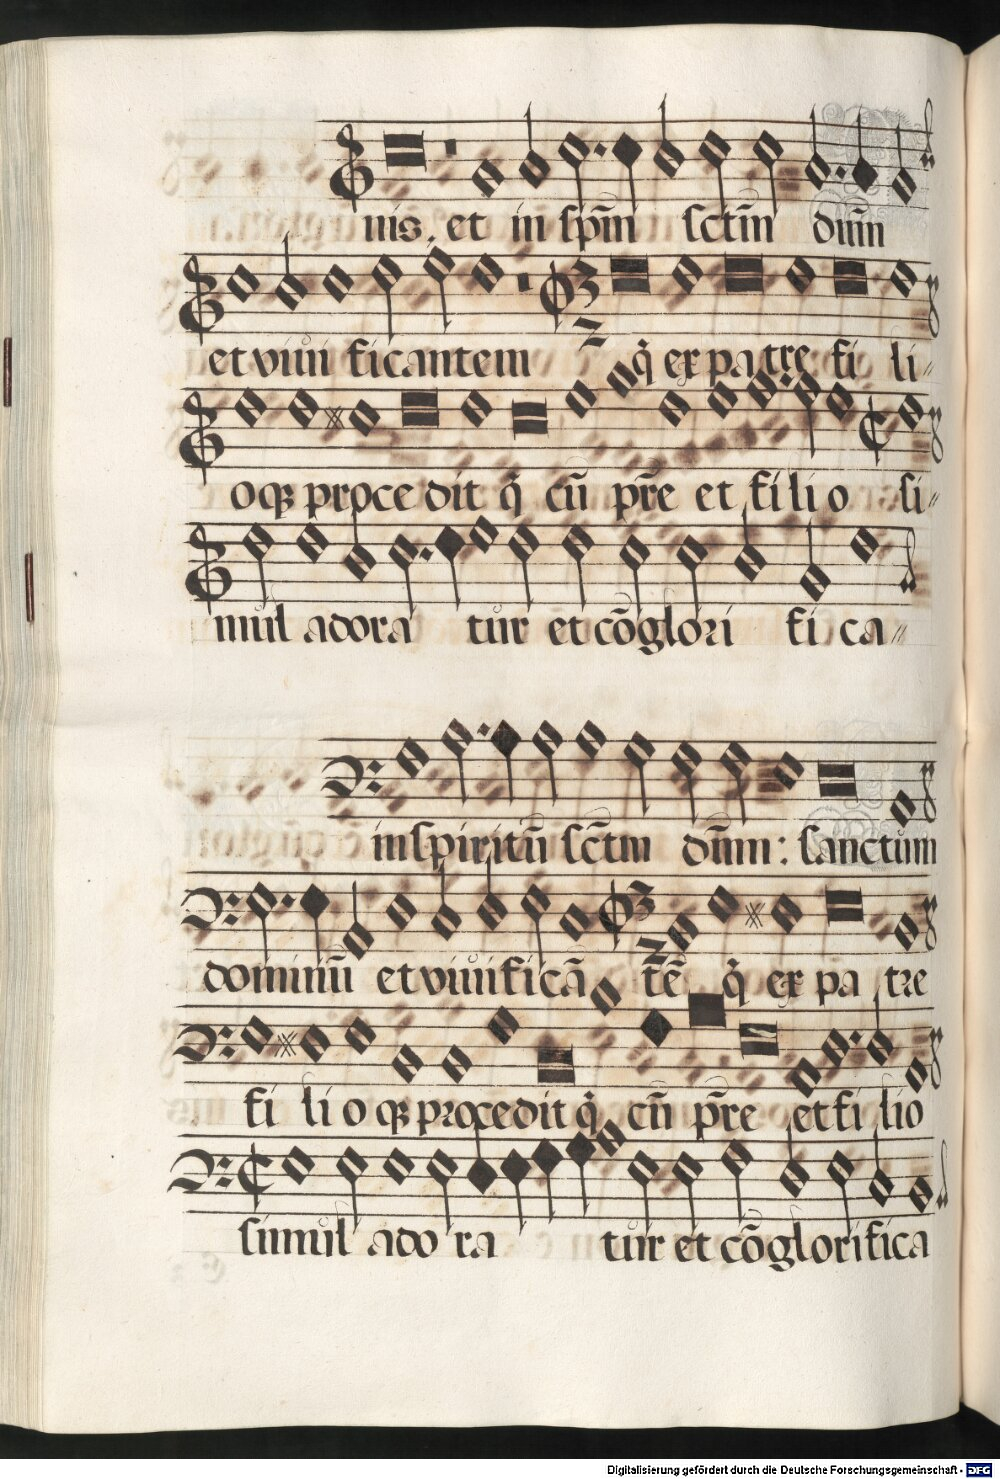 nis. et in sp̄m sctm̄ dūm
et viui ficantem q̇ ex patre fi li
oqꝫ procedit q̇ cū pr̄e et filio si
mul adora tur et cōglori fi ca
in spiritū sc̄tm dūm: sanctum
dominū et viuificā tē q̇ ex pa tre
fi li o qꝫ procedit q̇ cū pr̄e et filio
simul ado ra tur et cōglorifica
Digitalisierung gefördert durch die Deutsche Forschungsgemeinschaft - DFG